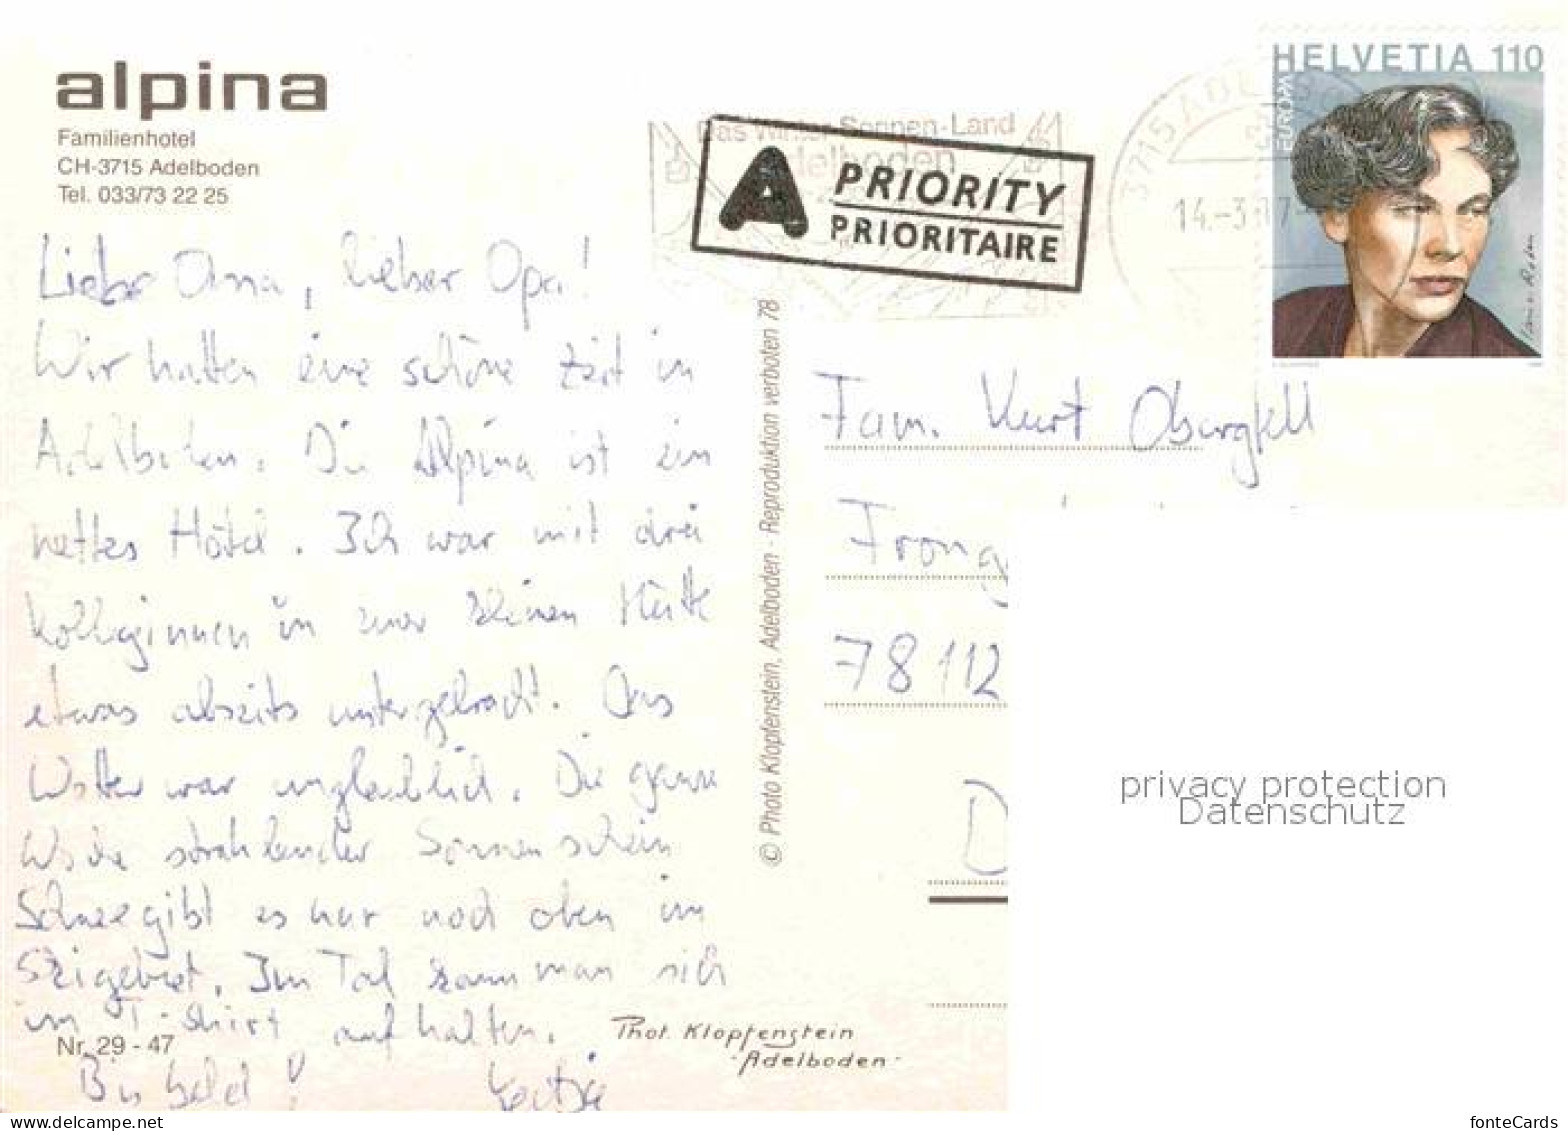 alpina
Familienhotel
CH-3715 Adelboden
Tel. 033/73 22 25
Liebe Oma, lieber Opa!
Wir hatten eine schöne Zeit in
Adelboden. Die Alpina ist ein
nettes Hotel. Ich war mit drei
Kolleginnen in einer kleinen Hütte
etwas abseits untergebracht. Das
Wetter war unglaublich. Die ganze
Woche strahlender Sonnenschein
Schnee gibt es nur noch oben im
Skigebiet. Im Tal kann man sich
im T-Shirt aufhalten.
Nr. 29 - 47
Bis bald!
Phot. Klopfenstein
-Adelboden-
© Photo Klopfenstein, Adelboden - Reproduktion verboten 78
Das Winter-Sonnen-Land
Adelboden
A PRIORITY
PRIORITAIRE
3715 ADELBO
14.-3.
HELVETIA 110
EUROPA
Fam. Kurt Obergfell
78112
D
privacy protection
Datenschutz
fonteCards